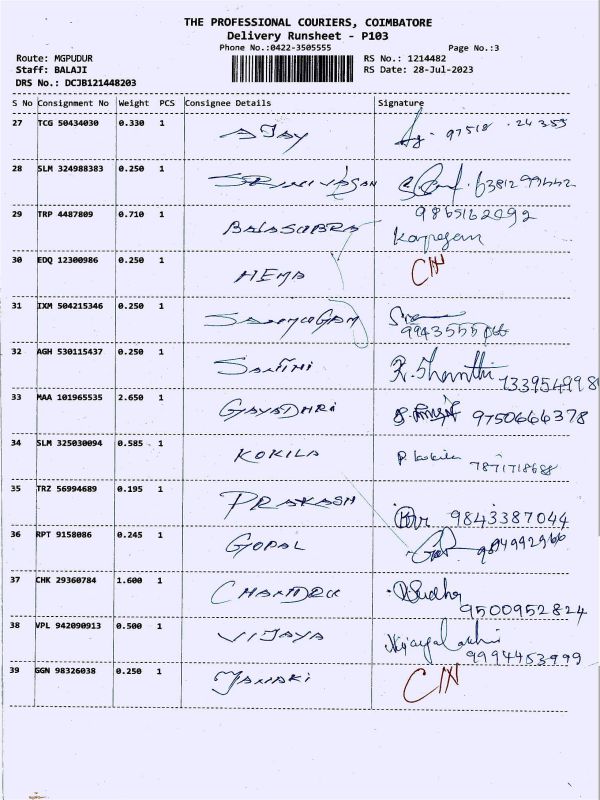 THE PROFESSIONAL COURIERS, COIMBATORE
Delivery Runsheet - P103
Phone No.:0422-3505555 Page No.:3
Route: MGPUDUR RS No.: 1214482
Staff: BALAJI RS Date: 28-Jul-2023
DRS No.: DCJB121448203
S No Consignment No Weight PCS Consignee Details Signature
27 TCG 50434030 0.330 1 AJAY 97518 24353
28 SLM 324988383 0.250 1 SRINIVASAN 6381299442
29 TRP 4487809 0.710 1 BALASUBRA 9865162092
30 EDQ 12300986 0.250 1 HEMA
31 IXM 504215346 0.250 1
32 AGH 530115437 0.250 1 SANTHI R. Shanthi 7339549998
33 MAA 101965535 2.650 1 GAYATHRI 9750664378
34 SLM 325030094 0.585 1 KOKILA P kokila 7871718688
35 TRZ 56994689 0.195 1 PRAKASH 9843387044
36 RPT 9158086 0.245 1 GOPAL
37 CHK 29360784 1.600 1 CHANDRU Sudha
9500952824
38 VPL 942090913 0.500 1 VIJAYA Vijayalakshmi
9994453999
39 GGN 98326038 0.250 1 JANAKI